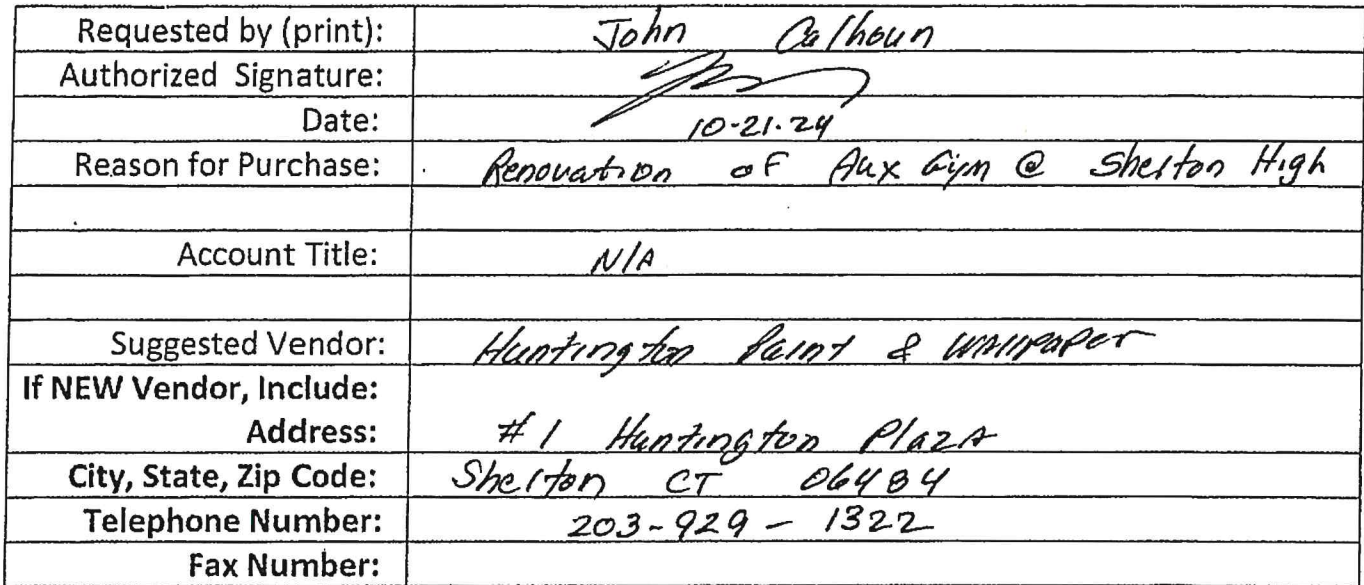 Requested by (print): John Calhoun
Authorized Signature:
Date: 10-21-24
Reason for Purchase: Renovation of Aux Gym @ Shelton High
Account Title: N/A
Suggested Vendor: Huntington Paint & Wallpaper
If NEW Vendor, Include:
Address: #1 Huntington Plaza
City, State, Zip Code: Shelton CT 06484
Telephone Number: 203-929-1322
Fax Number: